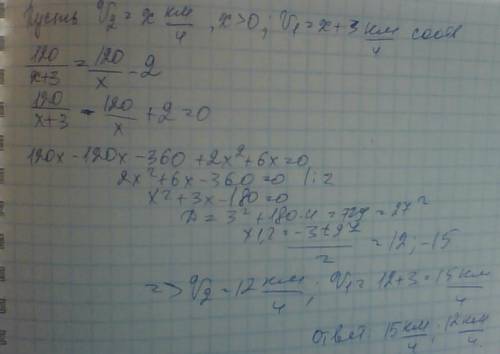 Пусть V₂ = x км/ч, x>0; V₁ = x+3 км/ч соотв
120/(x+3) = 120/x - 2
120/(x+3) - 120/x + 2 = 0
120x - 120x - 360 + 2x² + 6x = 0
2x² + 6x - 360 = 0 |:2
x² + 3x - 180 = 0
D = 3² + 180·4 = 729 = 27²
x₁,₂ = (-3±27)/2 = 12; -15
=> V₂ = 12 км/ч; V₁ = 12+3 = 15 км/ч
Ответ: 15 км/ч; 12 км/ч.